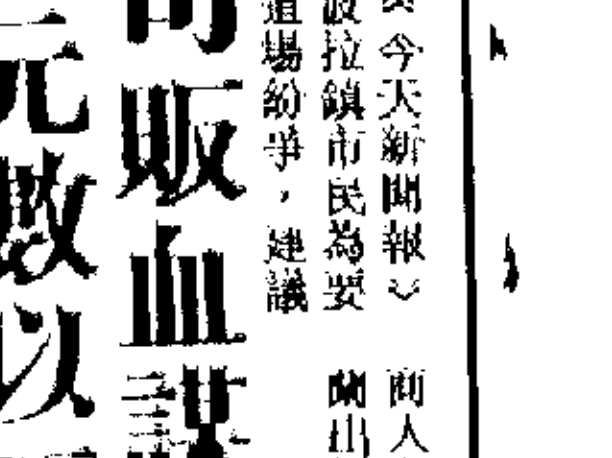 今天新聞報》 商人
波拉鎮市民為要 蘭山
道場紛爭，建議
販血謀
元數以